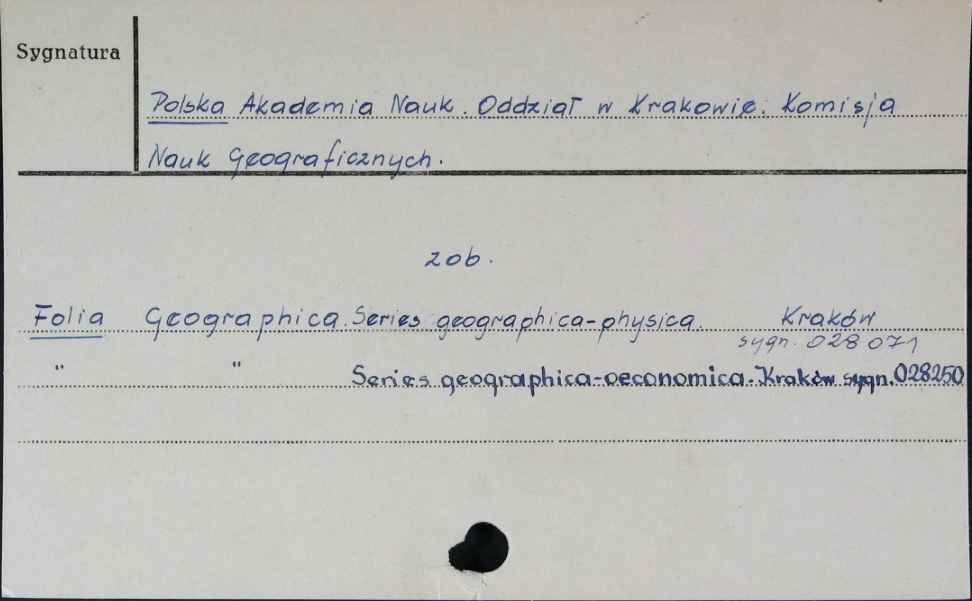 Sygnatura
Polska Akademia Nauk. Oddział w Krakowie. Komisja
Nauk Geograficznych.
zob.
Folia Geographica. Series geographica-physica. Kraków
sygn. 028071
" " Series geographica-oeconomica. Kraków sygn. 028250